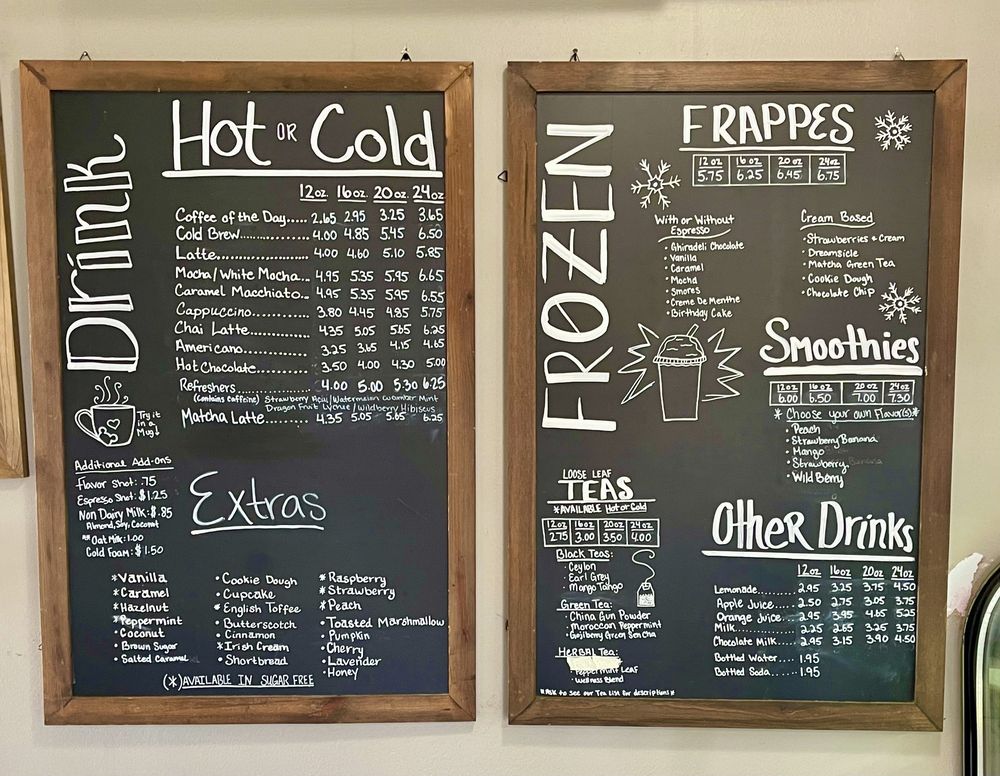 Drink
Hot OR Cold
12oz. 16oz. 20oz. 24oz
Coffee of the Day..... 2.65 2.95 3.25 3.65
Cold Brew............... 4.00 4.85 5.45 6.50
Latte..................... 4.00 4.60 5.10 5.85
Mocha/White Mocha... 4.95 5.35 5.95 6.65
Caramel Macchiato... 4.95 5.35 5.95 6.55
Cappuccino............ 3.80 4.45 4.85 5.75
Chai Latte.............. 4.35 5.05 5.65 6.25
Americano.............. 3.25 3.65 4.15 4.65
Hot Chocolate.......... 3.50 4.00 4.30 5.00
Refreshers............. 4.00 5.00 5.30 6.25
(contains caffeine) Strawberry Acai/Watermelon Cucumber Mint
Dragon Fruit Lychee/Wildberry Hibiscus
Matcha Latte........... 4.35 5.05 5.65 6.25
Try it
in a
Mug!
Additional Add-ons
Flavor Shot: .75
Espresso Shot: $1.25
Non Dairy Milk: $.85
Almond, Soy, Coconut
Oat Milk: 1.00
Cold Foam: $1.50
Extras
*Vanilla
*Caramel
*Hazelnut
*Peppermint
•Coconut
•Brown Sugar
•Salted Caramel
•Cookie Dough
•Cupcake
*English Toffee
•Butterscotch
•Cinnamon
*Irish Cream
•Shortbread
*Raspberry
*Strawberry
*Peach
•Toasted Marshmallow
•Pumpkin
•Cherry
•Lavender
•Honey
(*)AVAILABLE IN SUGAR FREE
FROZEN
FRAPPES
12oz 16oz 20oz 24oz
5.75 6.25 6.45 6.75
With or Without
Espresso
•Ghiradeli Chocolate
•Vanilla
•Caramel
•Mocha
•Smores
•Creme De Menthe
•Birthday Cake
Cream Based
•Strawberries + Cream
•Dreamsicle
•Matcha Green Tea
•Cookie Dough
•Chocolate Chip
Smoothies
12oz 16oz 20oz 24oz
6.00 6.50 7.00 7.30
*Choose your own Flavor(s)*
•Peach
•Strawberry Banana
•Mango
•Strawberry
•Wild Berry
LOOSE LEAF
TEAS
*AVAILABLE Hot or Cold
12oz 16oz 20oz 24oz
2.75 3.00 3.50 4.00
Black Teas:
•Ceylon
•Earl Grey
•Mango Tango
Green Tea:
•China Gun Powder
•Moroccan Peppermint
•Gojiberry Green Sencha
Herbal Tea:
•Peppermint Leaf
•Wellness Blend
*Ask to see our Tea List for descriptions*
Other Drinks
12oz 16oz 20oz 24oz
Lemonade............ 2.95 3.25 3.75 4.50
Apple Juice...... 2.50 2.75 3.05 3.75
Orange Juice.. 2.95 3.95 4.65 5.25
Milk................. 2.25 2.65 3.25 3.75
Chocolate Milk.... 2.95 3.15 3.90 4.50
Bottled Water.... 1.95
Bottled Soda...... 1.95